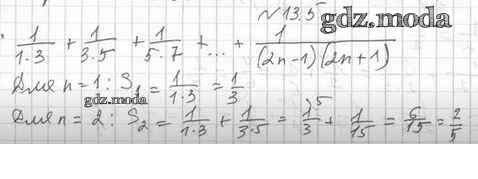 №13.5
gdz.moda
1/(1·3) + 1/(3·5) + 1/(5·7) + ... + 1/((2n-1)(2n+1))
Для n=1: S₁ = 1/(1·3) = 1/3
gdz.moda
Для n=2: S₂ = 1/(1·3) + 1/(3·5) = 1/3⁵ + 1/15 = 6/15 = 2/5